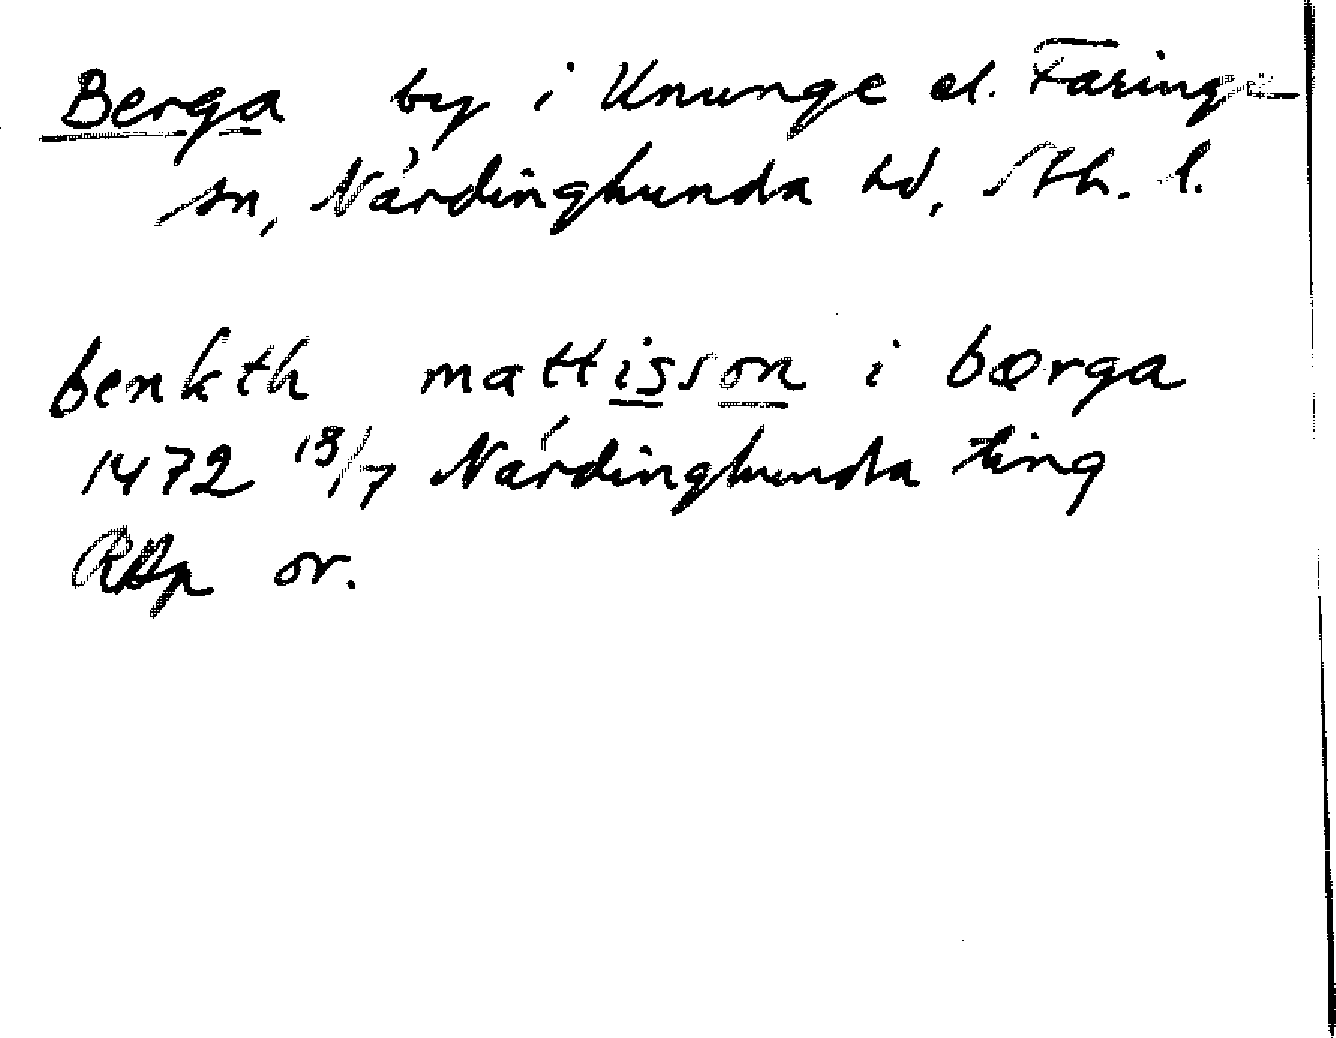 Berga by i Knunge el. Faringe
sn, Närdinghunda hd, Sth. l.
benkth mattisson i bærga
1472 13/7 Närdinghundra ting
RAp or.